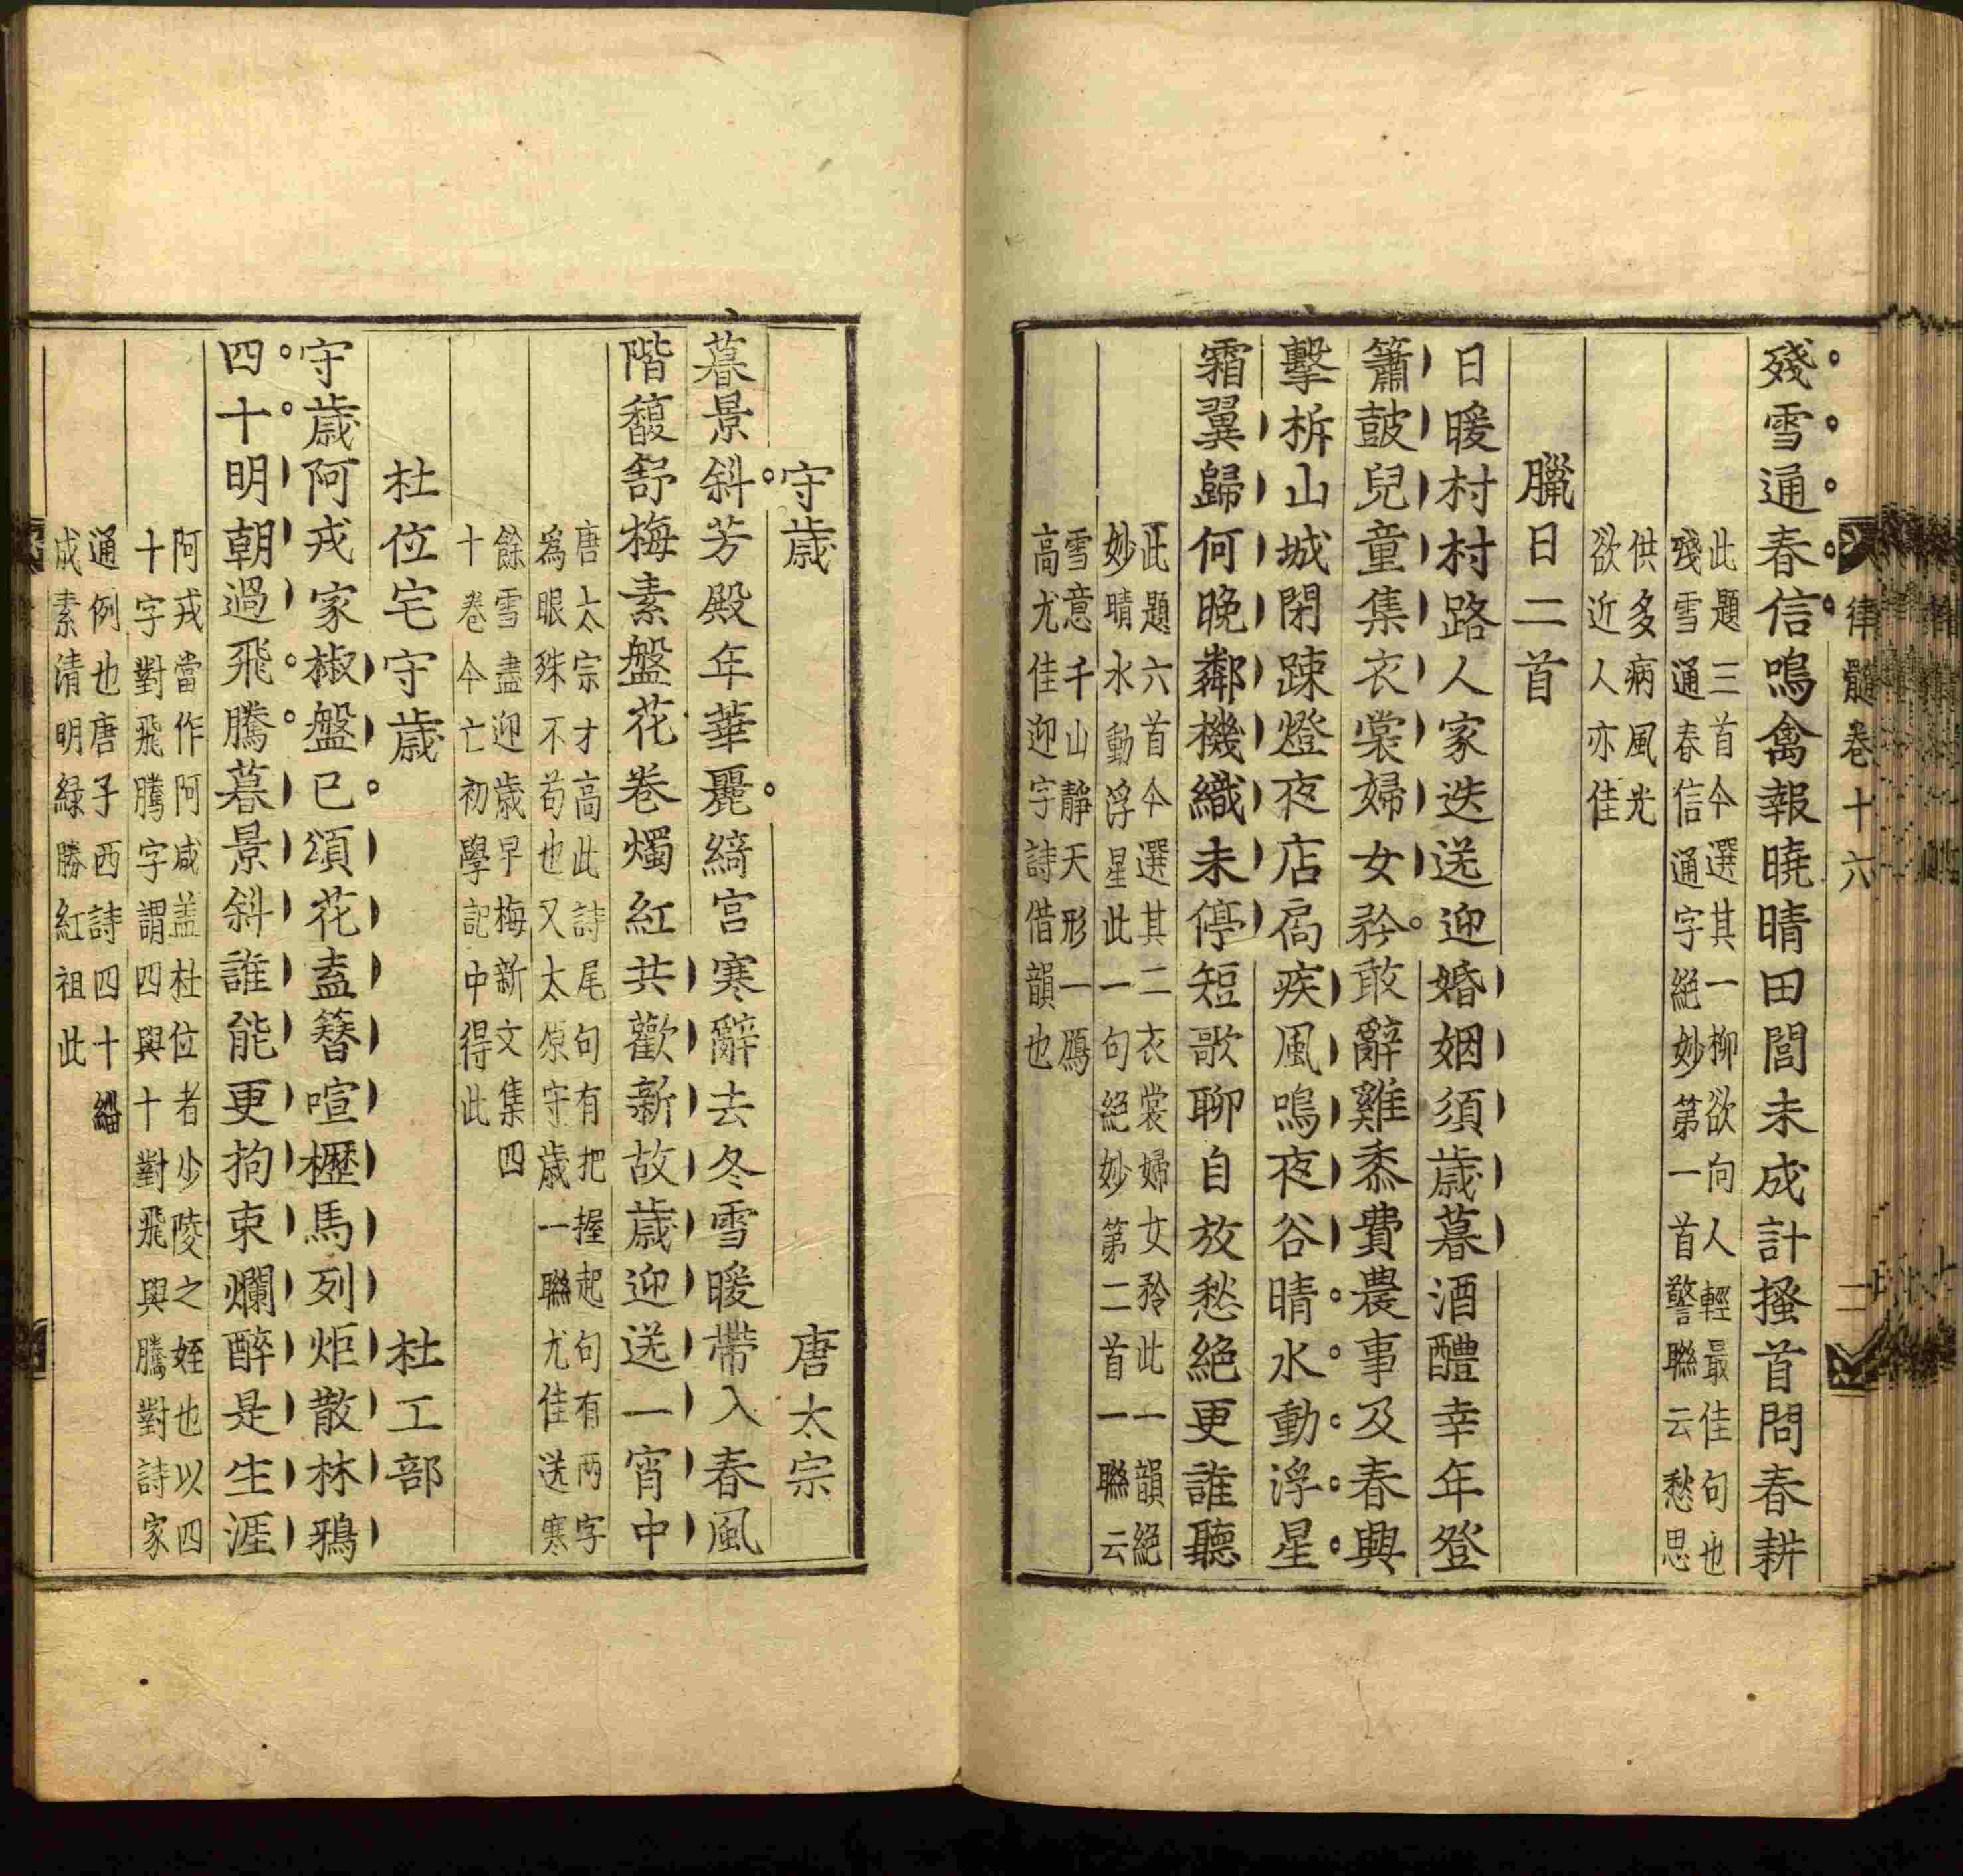 殘雪通春信鳴禽報曉晴田閭未成計搔首問春耕
此題三首今選其一柳欲向人輕最佳句也
殘雪通春信通字絕妙第一首警聯云愁思
供多病風光
欲近人亦佳
臘日二首
日暖村村路人家迭送迎婚姻須歲暮酒醴幸年登
簫鼓兒童集衣裳婦女矜敢辭雞黍費農事及春興
擊柝山城閉踈燈夜店扄疾風鳴夜谷晴水動浮星
霜翼歸何晚鄰機織未停短歌聊自放愁絕更誰聽
此題六首今選其二衣裳婦女矜此一韻絕
妙晴水動浮星此一句絕妙第二首一聯云
雪意千山靜天形一鴈
高尤佳迎字詩借韻也
律髓卷十六
二
守歲
唐太宗
暮景斜芳殿年華麗綺宮寒辭去冬雪暖帶入春風
階馥舒梅素盤花卷燭紅共歡新故歲迎送一宵中
唐太宗才高此詩尾句有把握起句有两字
為眼殊不苟也又太原守歲一聯尤佳送寒
餘雪盡迎歲早梅新文集四
十卷今亡初學記中得此
杜位宅守歲
杜工部
守歲阿戎家椒盤已頌花盍簪喧櫪馬列炬散林鴉
四十明朝過飛騰暮景斜誰能更拘束爛醉是生涯
阿戎當作阿咸盖杜位者少陵之姪也以四
十字對飛騰字謂四與十對飛與騰對詩家
通例也唐子西詩四十緇
成素清明緑勝紅祖此